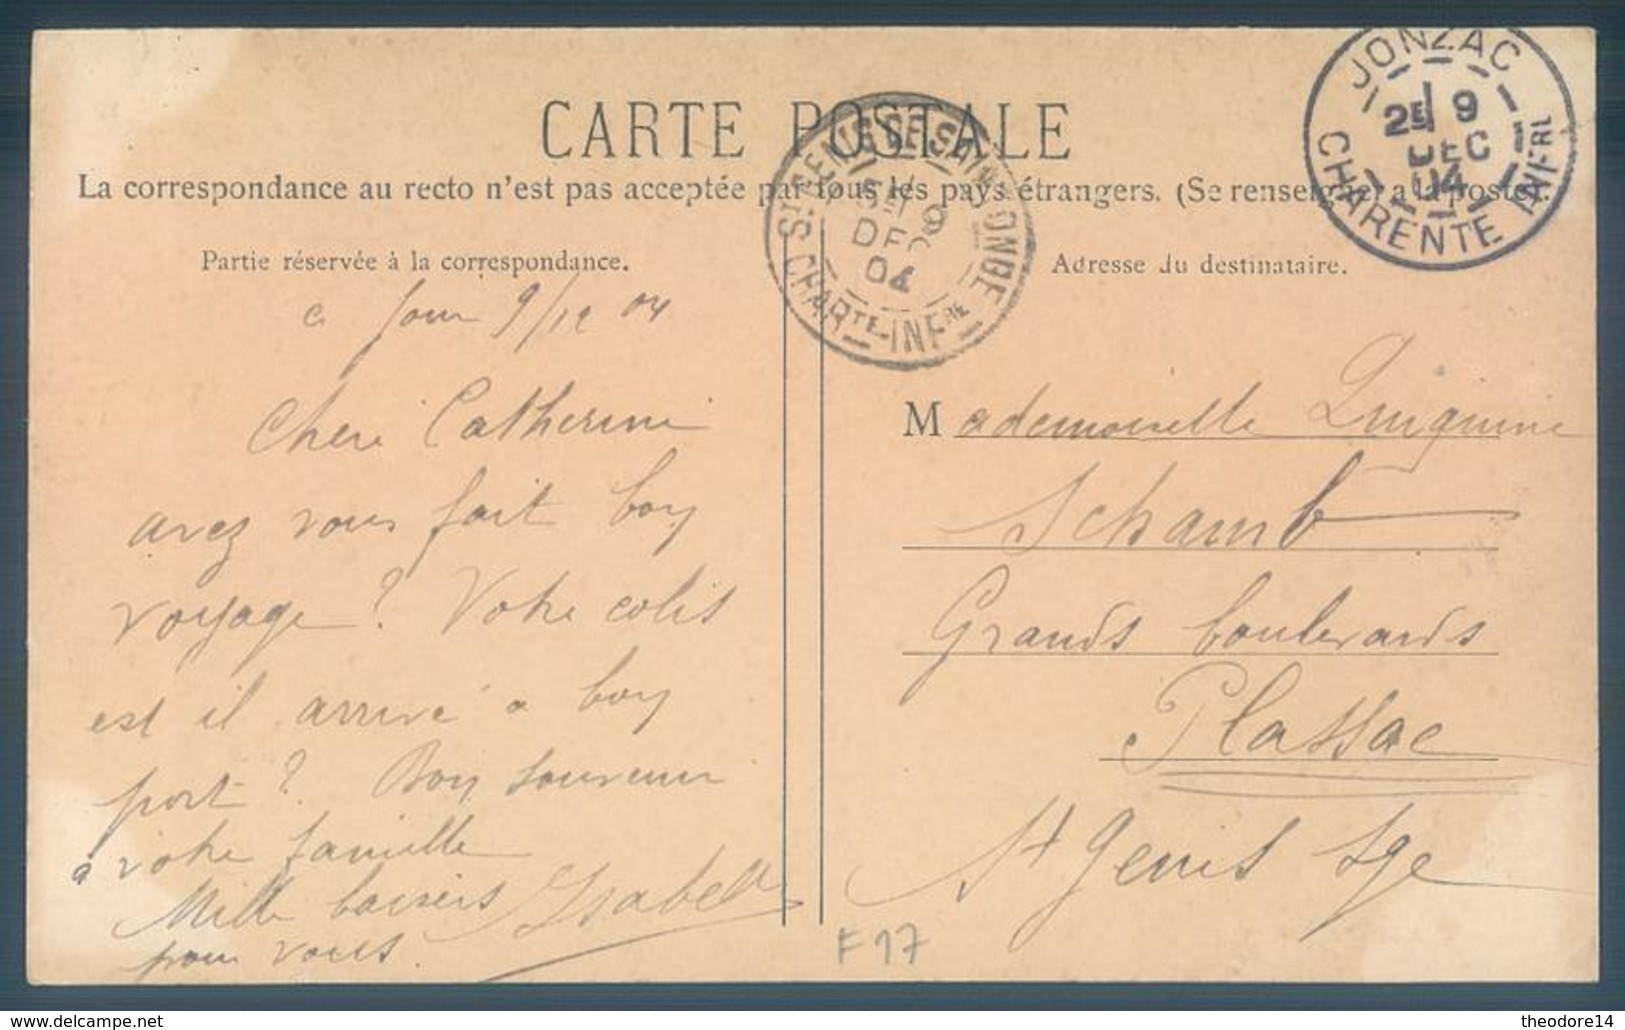 CARTE POSTALE
La correspondance au recto n'est pas acceptée par tous les pays étrangers. (Se renseigner à la poste).
Partie réservée à la correspondance.
ce Jour 9/12 04
Cheri Catherine
avez vous fait boy
voyage ? Votre colis
est il arrivé a boy
port ? Boy souvenir
a votre famille
Mille baisers Isabelle
pour vous.
Adresse du destinataire.
Mademoiselle
Schamb
Grands boulevards
Plassac
St Genis Sge
JONZAC
2E 9
DEC
04
CHARENTE INFRE
ST GENIS DE SAINTONGE
9
DEC
04
CHARTE-INFRE
F 17
http://www.delcampe.net
theodore14